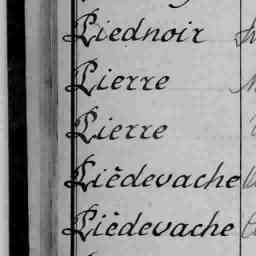 Piednoir
Pierre
Pierre
Piédevache
Piédevache